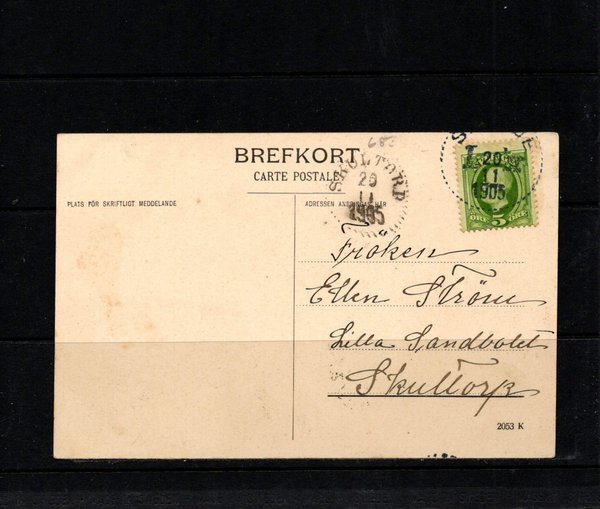 683
BREFKORT
CARTE POSTALE
PLATS FÖR SKRIFTLIGT MEDDELANDE
ADRESSEN ANBRINGAS HÄR
SKULTORP
20
11
1905
20
1
1905
ÖRE 5 ÖRE
Fröken
Ellen Ström
Lilla Sandbolet
Skultorp
2053 K